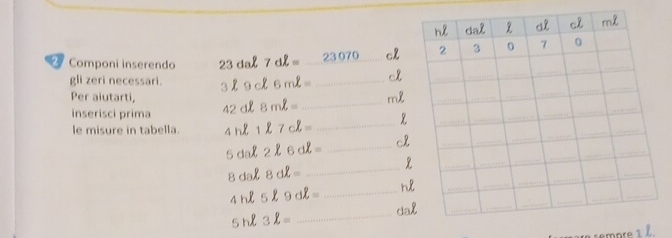 hℓ daℓ ℓ dℓ cℓ mℓ
2 3 0 7 0
2 Componi inserendo
gli zeri necessari.
Per aiutarti,
inserisci prima
le misure in tabella.
23 daℓ 7 dℓ = 23070 cℓ
3 ℓ 9 cℓ 6 mℓ = cℓ
42 dℓ 8 mℓ = mℓ
4 hℓ 1 ℓ 7 cℓ = ℓ
5 daℓ 2 ℓ 6 dℓ = cℓ
8 daℓ 8 dℓ = ℓ
4 hℓ 5 ℓ 9 dℓ = hℓ
5 hℓ 3 ℓ = daℓ
sempre 1 ℓ.